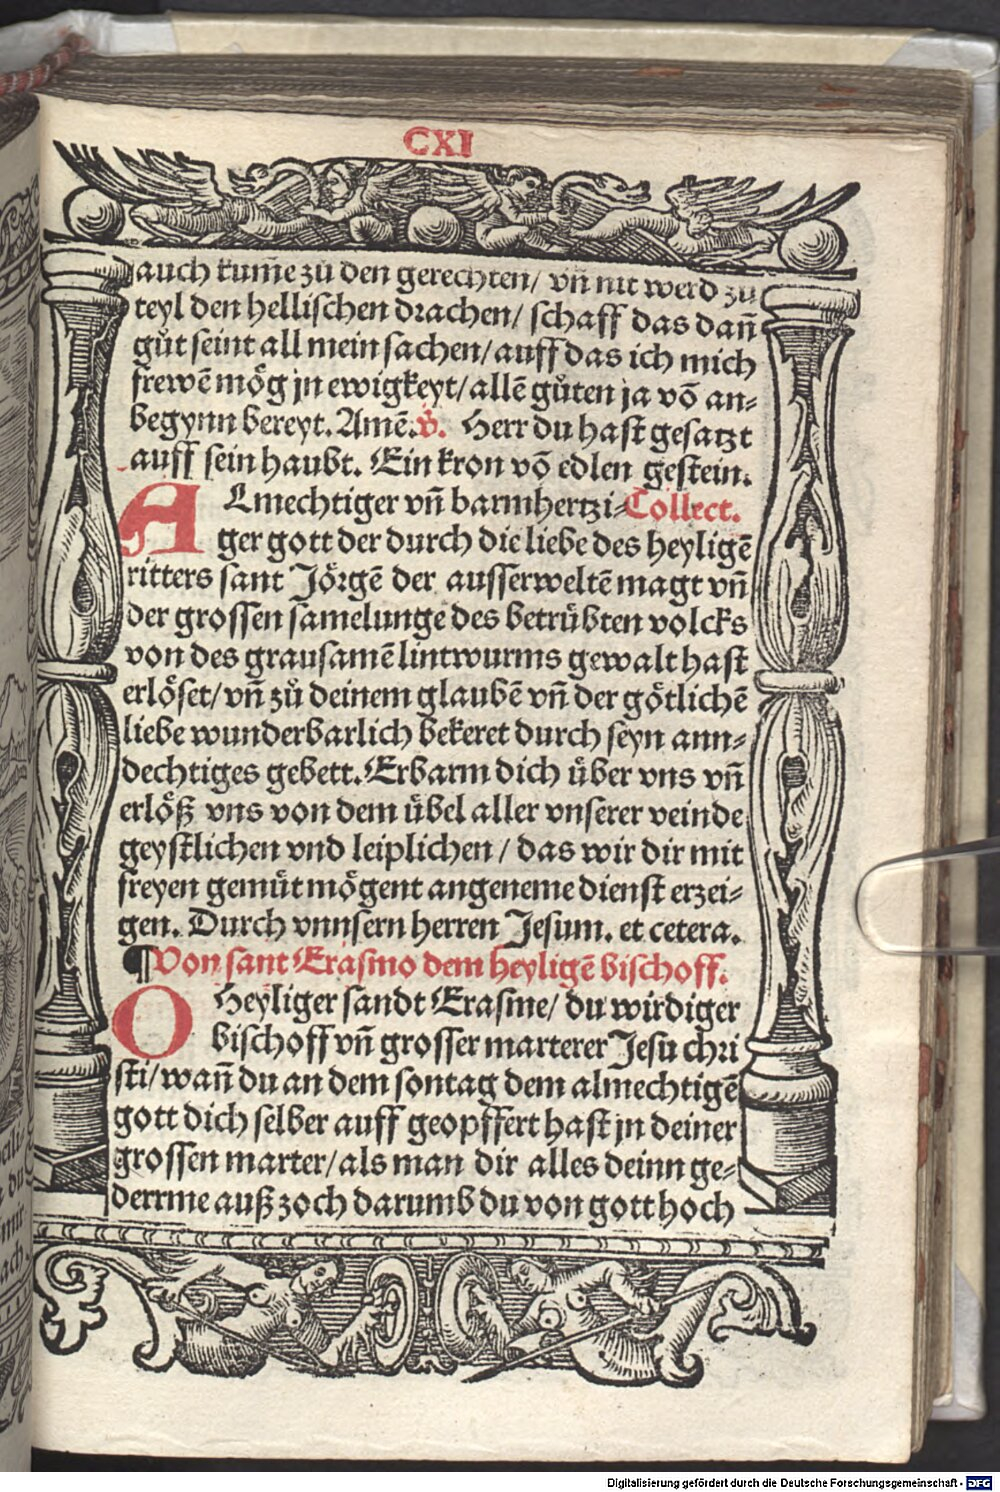 CXI
auch kum̃e zů den gerechten/ vñ nit werd zu
teyl den hellischen drachen/ schaff das dañ
gůt seint all mein sachen/ auff das ich mich
frewẽ mög jn ewigkeyt/ allẽ gůten ja võ an⸗
begynn bereyt. Amẽ. ℣. Herr du hast gesatzt
auff sein haubt. Ein kron võ edlen gestein.
ALmechtiger vñ barmhertzi⸗ Collect.
ger gott der durch die liebe des heyligẽ
ritters sant Jörgẽ der ausserweltẽ magt vñ
der grossen samelunge des betrübten volcks
von des grausamẽ lintwurms gewalt hast
erlöset/ vñ zů deinem glaubẽ vñ der götlichẽ
liebe wunderbarlich bekeret durch seyn ann⸗
dechtiges gebett. Erbarm dich über vns vñ
erlöß vns von dem übel aller vnserer veinde
geystlichen vnd leiplichen/ das wir dir mit
freyen gemüt mögent angeneme dienst erzei⸗
gen. Durch vnnsern herren Jesum. et cetera.
¶Von sant Erasmo dem heyligẽ bischoff.
O Heyliger sandt Erasme/ du wirdiger
bischoff vñ grosser marterer Jesu chri
sti/ wañ du an dem sontag dem almechtigẽ
gott dich selber auff geopffert hast jn deiner
grossen marter/ als man dir alles deinn ge⸗
derrme auß zoch darumb du von gott hoch
Digitalisierung gefördert durch die Deutsche Forschungsgemeinschaft - DFG